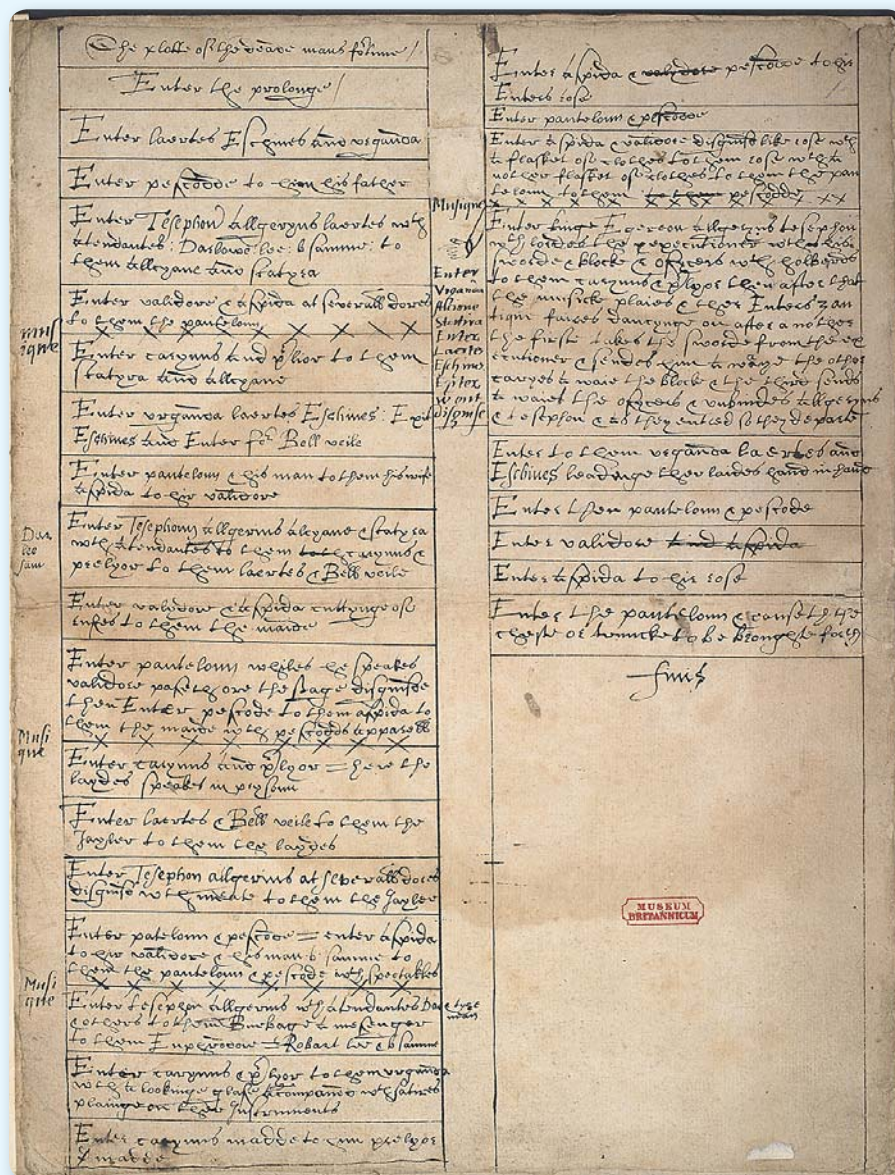 The plotte of the deade mans fortune /
Enter the prolouge /
Enter laertes Eschines and vrganda
Enter pescodde to him his father
Enter Tesephon allgerius laertes wth
atendantes: Darlowe: lee: b samme: to
them allcyane and statyra
Enter validore & aspida at severall dores
to them the pantelonn
musique
Enter carynus and prlior to them
statyra and allcyane
Enter vrganda laertes Eschines: Exit
Eschines and Enter for Bell veile
Enter pantelonn & his man to them his wife
aspida to hir validore
Dar
lee
sam
Enter Tesephonn allgerius alcyane & statyra
wth atendantes to them carynus &
prelyor to them laertes & Bell veile
Enter valydore & aspida cuttynge ofe
ruffes to them the maide
Enter pantelonn whiles he speakes
validore passeth ore the stage disguisde
then Enter pescode to them aspida to
them the maide wth pescodds apparell
Musique
Enter carynus and prlyor = here the
laydes speakes in prysonn
Enter laertes & Bell veile to them the
Jayler to them the laydes
Enter Tesephon allgerius at severall dores
disguisd wth meate to them the Jayler
Enter patelonn & pescode = enter aspida
to hir validore & his man b samme to
them the pantelonn & pescode wth spectakles
Musique
Enter tesephon allgerius wth atendantes Dar & tyre man
& others to them Burbage a mesenger
to them Euphrodore = Robart lee & b samme
Enter carynus & prlyor to them vrganda
wth a lookinge glasse acompaned wth satires
plainge on ther Instruments
Enter carynus madde to him prelyor
madde
Enter aspida & validore pescodde to hir
Enters rose
Enter pantelonn & pescodde
Enter aspida & validore disguisd like rose wth
a flasket of clothes to them rose wth a
nother flasket of clothes to them the pan
telonn to them to them pescodde
Musique
Enter kinge Egereon allgerius tesephon
wth lordes the executioner wth his
sworde & blocke & offycers wth holberds
to them carynus & prlyor then after that
the musicke plaies & ther Enters 3 an
tique faires dancynge on after a nother
the firste takes the sworde from the ex
ecutioner & sendes him a waye the other
caryes a waie the blocke & the third sends
a waie the offycers & unbindes allgerius
& tesephon & as they entred so they departe
Enter
Vrganda
Alcione
Statira
Enter
Laerte
Eschine
Enter
wout
disguise
Enter to them vrganda laertes and
Eschines leadinge ther laides hand in hand
Enter then pantelonn & pescode
Enter validore and aspida
Enter aspida to hir rose
Enter the pantelonn & causeth the
cheste or truncke to be broughte forth
finis
MUSEUM
BRITANNICUM